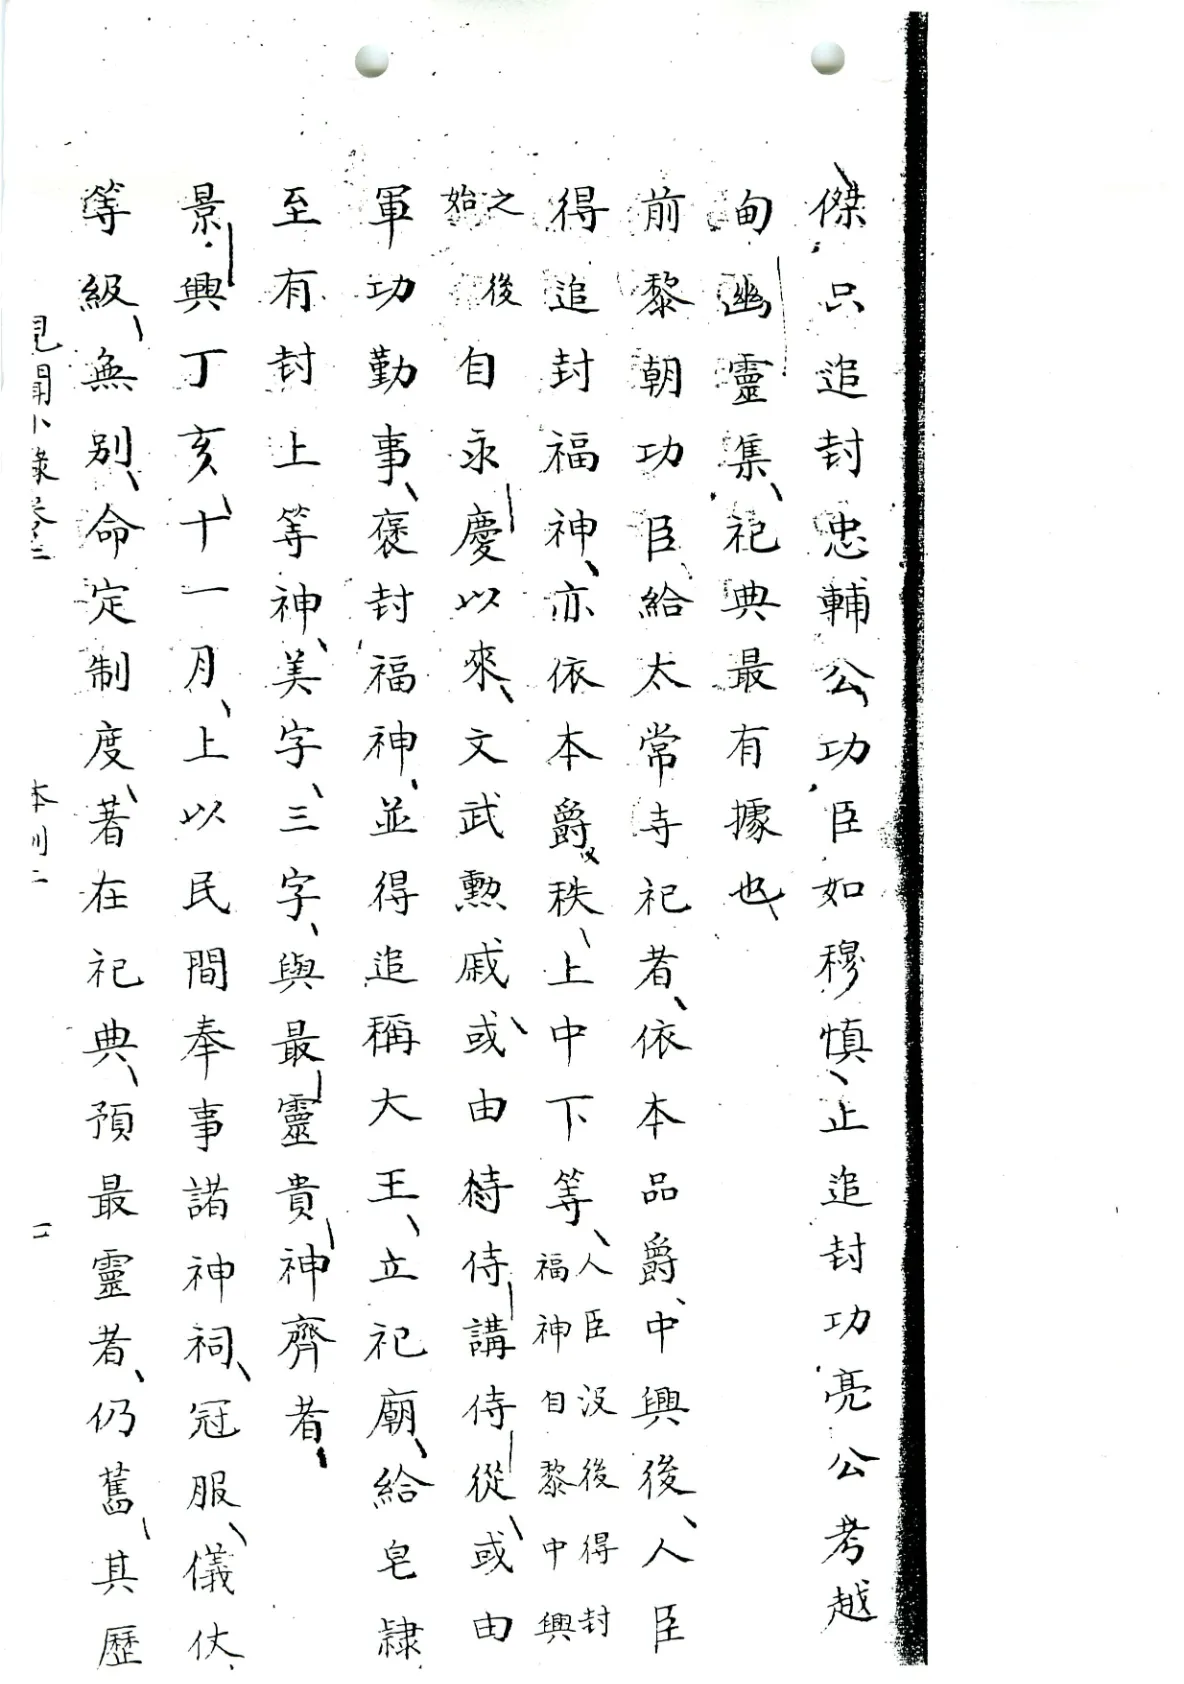 傑只追封忠輔公功臣如穆慎止追封功亮公考越
甸幽靈集祀典最有據也
前黎朝功臣給太常寺祀者依本品爵中興後人臣
得追封福神亦依本爵秩上中下等人臣沒後得封福神自黎中興
之後始自永慶以來文武勲戚或由待侍講侍從或由
軍功勤事褒封福神並得追稱大王立祀廟給皂隸
至有封上等神美字三字與最靈貴神齊者
景興丁亥十一月上以民間奉事諸神祠冠服儀仗
等級無別命定制度著在祀典預最靈者仍舊其歷
見聞小錄卷二 本刊二 二